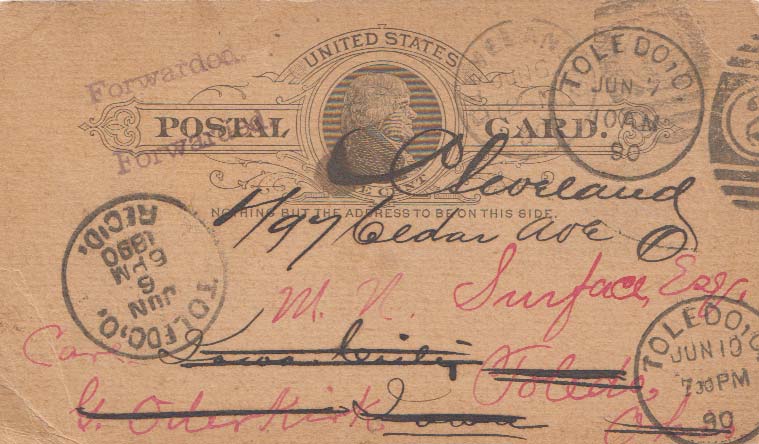 Forwarded.
Forwarded.
UNITED STATES
POSTAL CARD.
ONE CENT
NOTHING BUT THE ADDRESS TO BE ON THIS SIDE.
CLEVELAND
JUN
TOLEDO, O.
JUN 7
10 AM
90
2
Cleveland
Cedar Ave O
M. N. Surface, Esq.,
Care
Toledo,
G. Oderkirk
Iowa
Ohio
TOLEDO, O.
JUN
9
6 PM
1890
REC'D.
TOLEDO, O.
JUN 10
730 PM
90